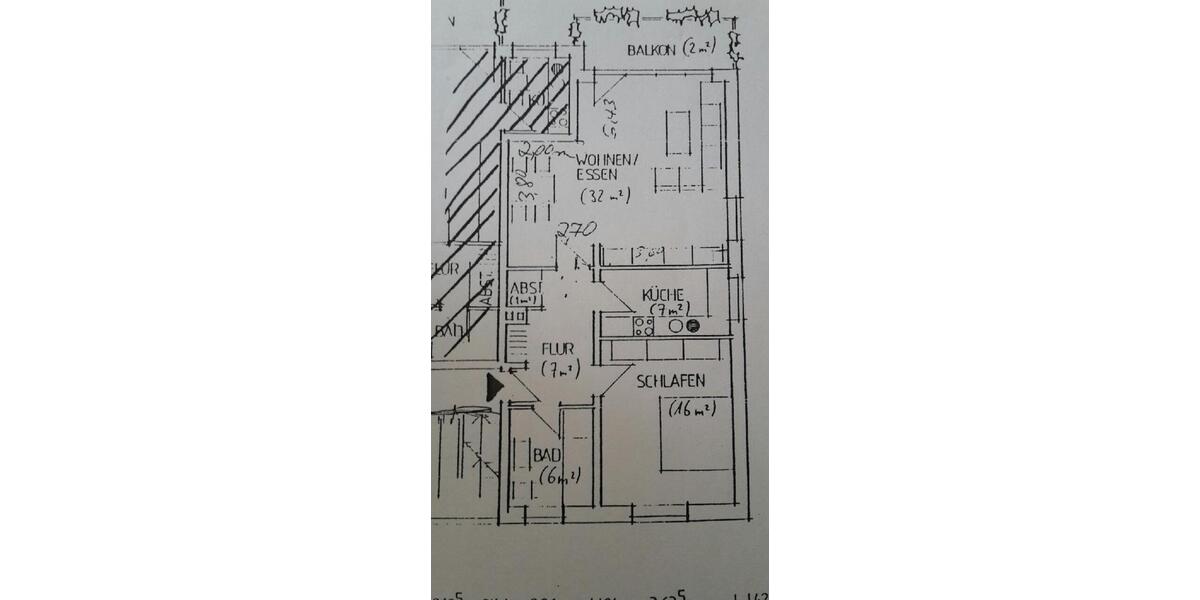 BALKON (2 m²)
6,43
2,00 m
WOHNEN/
ESSEN
(32 m²)
3,80
270
FLUR
ABST
ABST
(1 m²)
KÜCHE
(7 m²)
BAD
FLUR
(7 m²)
SCHLAFEN
(16 m²)
BAD
(6 m²)